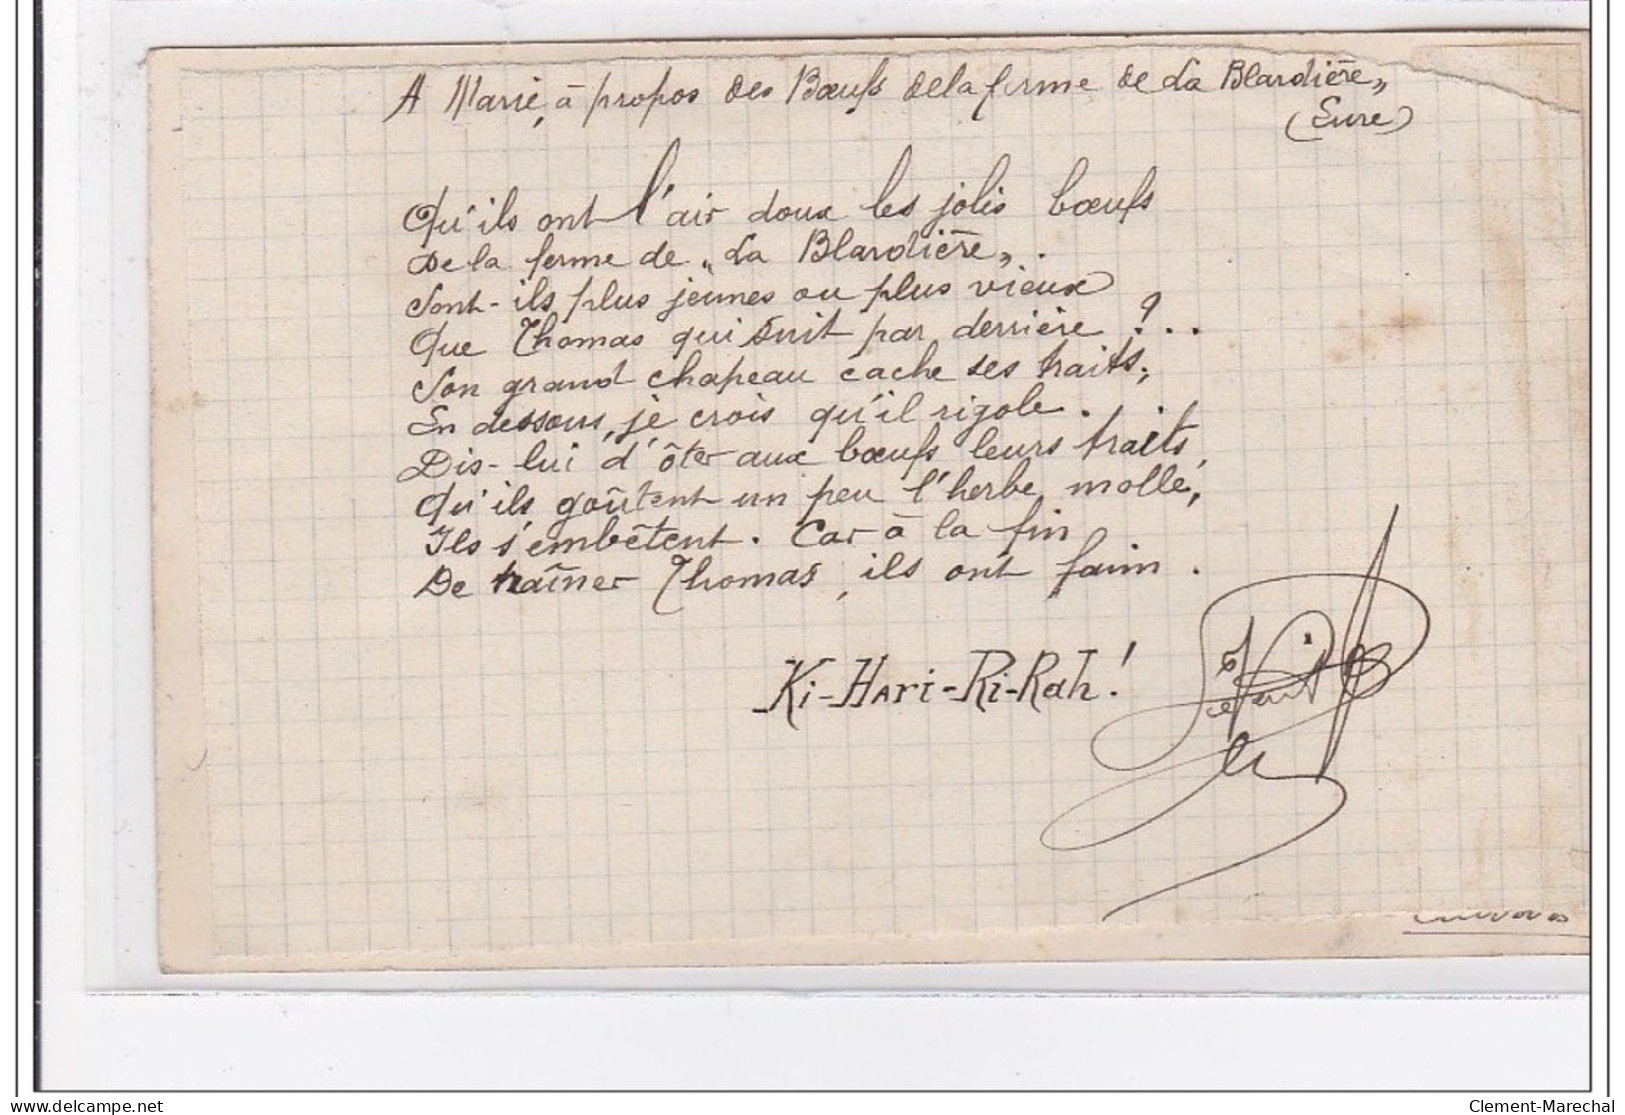 A Marie, à propos des Bœufs de la ferme de La Blardière„
(Eure)
Qu'ils ont l'air doux les jolis bœufs
De la ferme de „La Blardière„.
Sont-ils plus jeunes ou plus vieux
Que Thomas qui suit par derrière ?..
Son grand chapeau cache ses traits;
En dessous, je crois qu'il rigole.
Dis-lui d'ôter aux bœufs leurs traits,
Qu'ils goûtent un peu l'herbe molle,
Ils s'embêtent. Car à la fin
De traîner Thomas, ils ont faim.
Ki-Hari-Ri-Rah!
delcampe.net
Clement-Marechal